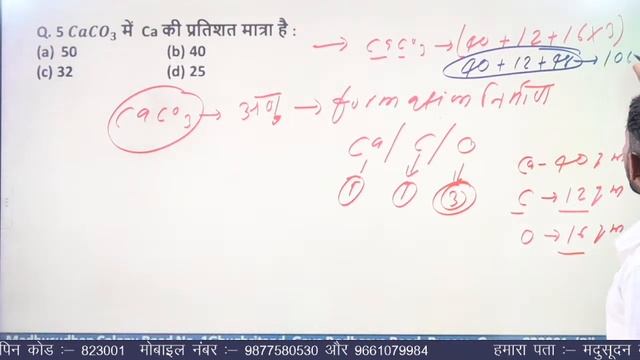 Q. 5 CaCO₃ में Ca की प्रतिशत मात्रा है :
(a) 50 (b) 40
(c) 32 (d) 25
→ CaCO₃ → (40 + 12 + 16×3)
40 + 12 + 48 → 100
CaCO₃ → अणु → formation निर्माण
Ca / C / O
1 1 3
Ca - 40 gm
C → 12 gm
O → 16 gm
पिन कोड :– 823001 मोबाइल नंबर :– 9877580530 और 9661079984 हमारा पता :– मदुसूदन